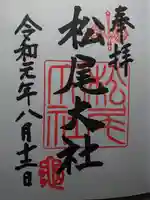 奉拝
松尾大社
松尾大社
令和元年八月十二日